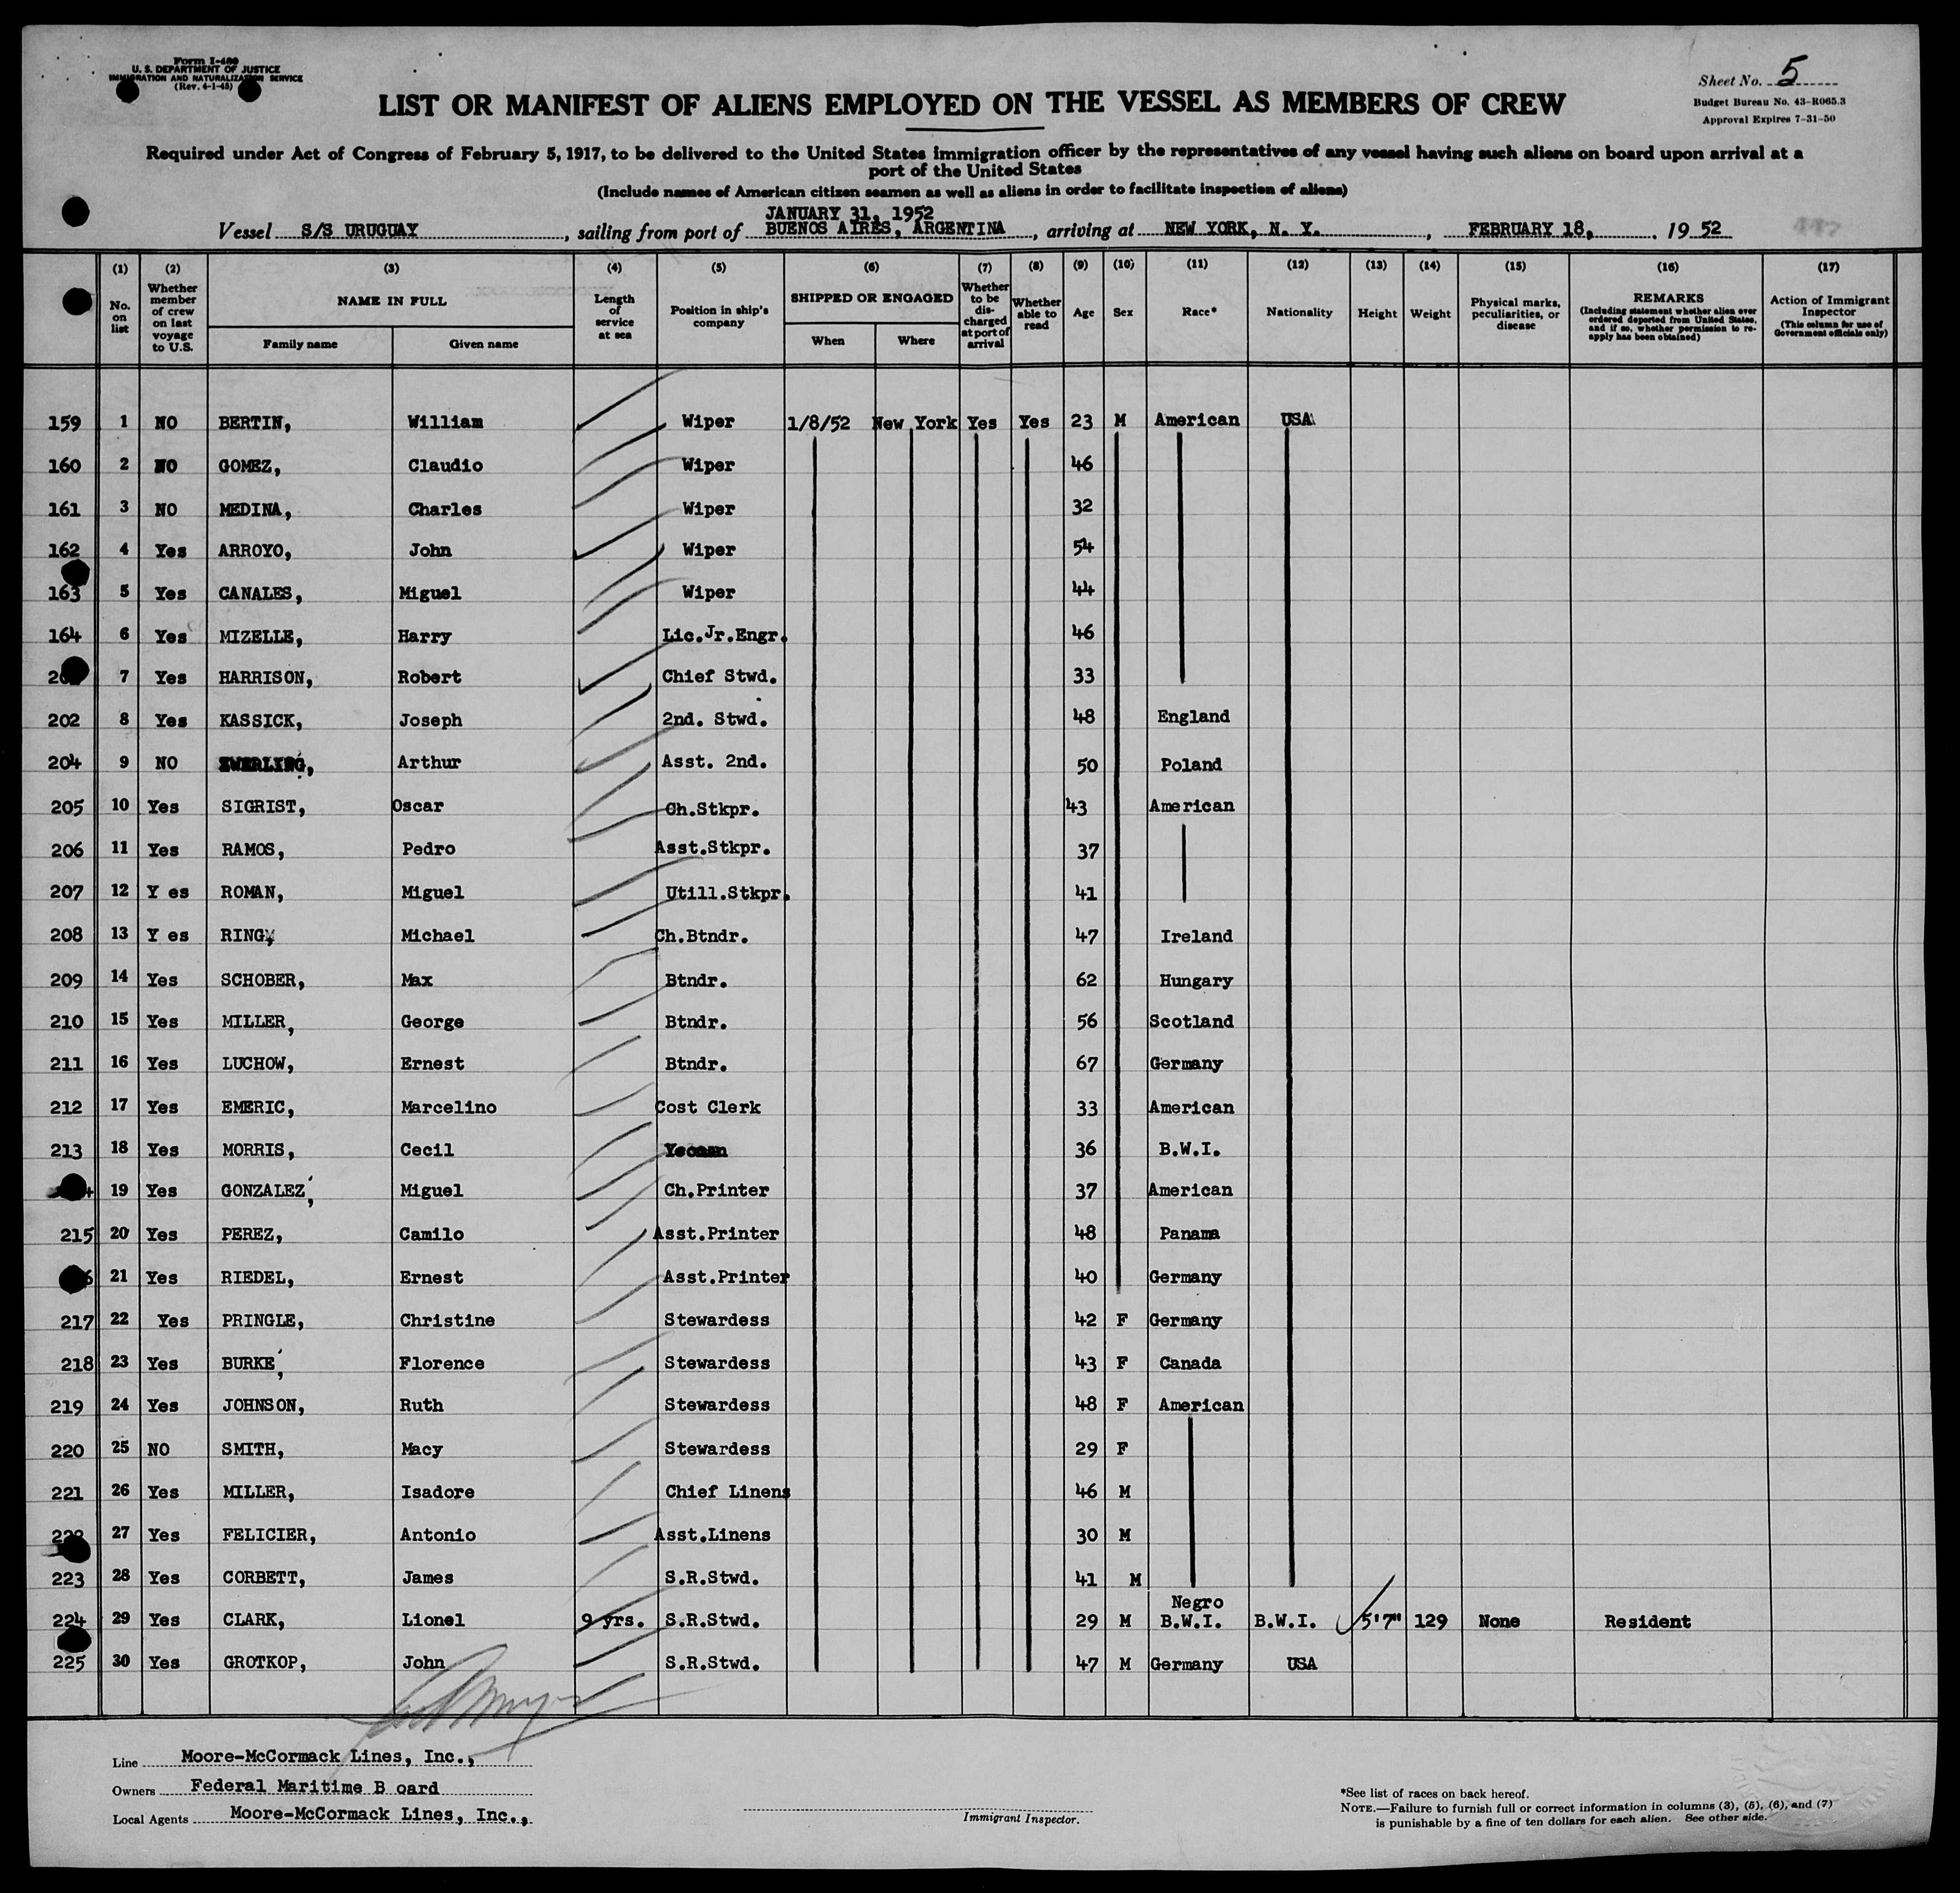 Form I-480
U. S. DEPARTMENT OF JUSTICE
IMMIGRATION AND NATURALIZATION SERVICE
(Rev. 4-1-45)
Sheet No. 5
Budget Bureau No. 43-R065.3
Approval Expires 7-31-50
LIST OR MANIFEST OF ALIENS EMPLOYED ON THE VESSEL AS MEMBERS OF CREW
Required under Act of Congress of February 5, 1917, to be delivered to the United States immigration officer by the representatives of any vessel having such aliens on board upon arrival at a
port of the United States
(Include names of American citizen seamen as well as aliens in order to facilitate inspection of aliens)
JANUARY 31, 1952
Vessel S/S URUGUAY, sailing from port of BUENOS AIRES, ARGENTINA, arriving at NEW YORK, N. Y., FEBRUARY 18, 19 52
(1) No. on list
(2) Whether member of crew on last voyage to U.S.
(3) NAME IN FULL Family name Given name
(4) Length of service at sea
(5) Position in ship's company
(6) SHIPPED OR ENGAGED When Where
(7) Whether to be discharged at port of arrival
(8) Whether able to read
(9) Age
(10) Sex
(11) Race*
(12) Nationality
(13) Height
(14) Weight
(15) Physical marks, peculiarities, or disease
(16) REMARKS (Including statement whether alien ever ordered deported from United States, and if so, whether permission to re-apply has been obtained)
(17) Action of Immigrant Inspector (This column for use of Government officials only)
159 1 NO BERTIN, William Wiper 1/8/52 New York Yes Yes 23 M American USA
160 2 NO GOMEZ, Claudio Wiper 46
161 3 NO MEDINA, Charles Wiper 32
162 4 Yes ARROYO, John Wiper 54
163 5 Yes CANALES, Miguel Wiper 44
164 6 Yes MIZELLE, Harry Lic.Jr.Engr. 46
7 Yes HARRISON, Robert Chief Stwd. 33
202 8 Yes KASSICK, Joseph 2nd. Stwd. 48 England
204 9 NO ZWERLING, Arthur Asst. 2nd. 50 Poland
205 10 Yes SIGRIST, Oscar Ch.Stkpr. 43 American
206 11 Yes RAMOS, Pedro Asst.Stkpr. 37
207 12 Y es ROMAN, Miguel Utill.Stkpr. 41
208 13 Y es RING, Michael Ch.Btndr. 47 Ireland
209 14 Yes SCHOBER, Max Btndr. 62 Hungary
210 15 Yes MILLER, George Btndr. 56 Scotland
211 16 Yes LUCHOW, Ernest Btndr. 67 Germany
212 17 Yes EMERIC, Marcelino Cost Clerk 33 American
213 18 Yes MORRIS, Cecil Yeoman 36 B.W.I.
19 Yes GONZALEZ, Miguel Ch.Printer 37 American
215 20 Yes PEREZ, Camilo Asst.Printer 48 Panama
21 Yes RIEDEL, Ernest Asst.Printer 40 Germany
217 22 Yes PRINGLE, Christine Stewardess 42 F Germany
218 23 Yes BURKE, Florence Stewardess 43 F Canada
219 24 Yes JOHNSON, Ruth Stewardess 48 F American
220 25 NO SMITH, Macy Stewardess 29 F
221 26 Yes MILLER, Isadore Chief Linens 46 M
27 Yes FELICIER, Antonio Asst.Linens 30 M
223 28 Yes CORBETT, James S.R.Stwd. 41 M
224 29 Yes CLARK, Lionel 9 yrs. S.R.Stwd. 29 M Negro B.W.I. B.W.I. 5'7" 129 None Resident
225 30 Yes GROTKOP, John S.R.Stwd. 47 M Germany USA
Line Moore-McCormack Lines, Inc.,
Owners Federal Maritime B oard
Local Agents Moore-McCormack Lines, Inc.,
Immigrant Inspector.
*See list of races on back hereof.
NOTE.—Failure to furnish full or correct information in columns (3), (5), (6), and (7)
is punishable by a fine of ten dollars for each alien. See other side.